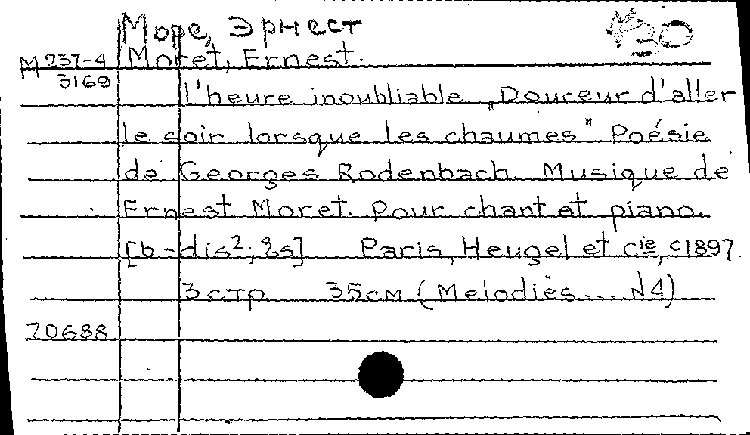 Море, Эрнест
M 237-4 Moret, Ernest.
3169
L'heure inoubliable „Douceur d'aller
le soir lorsque les chaumes" Poésie
de Georges Rodenbach. Musique de
Ernest Moret. Pour chant et piano.
[b-dis²; 2s] Paris, Heugel et cie, c1897.
3 стр 35см (Melodies... N4)
20688